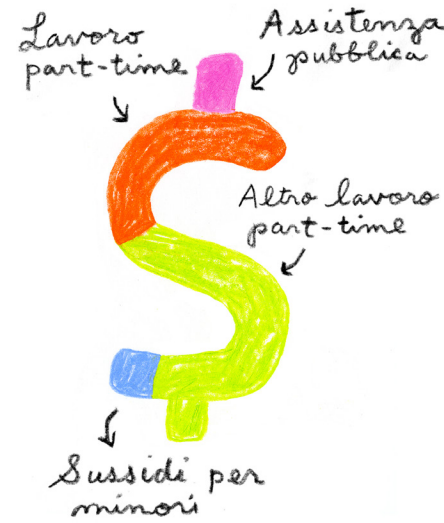 Lavoro
part-time
Assistenza
pubblica
Altro lavoro
part-time
Sussidi per
minori